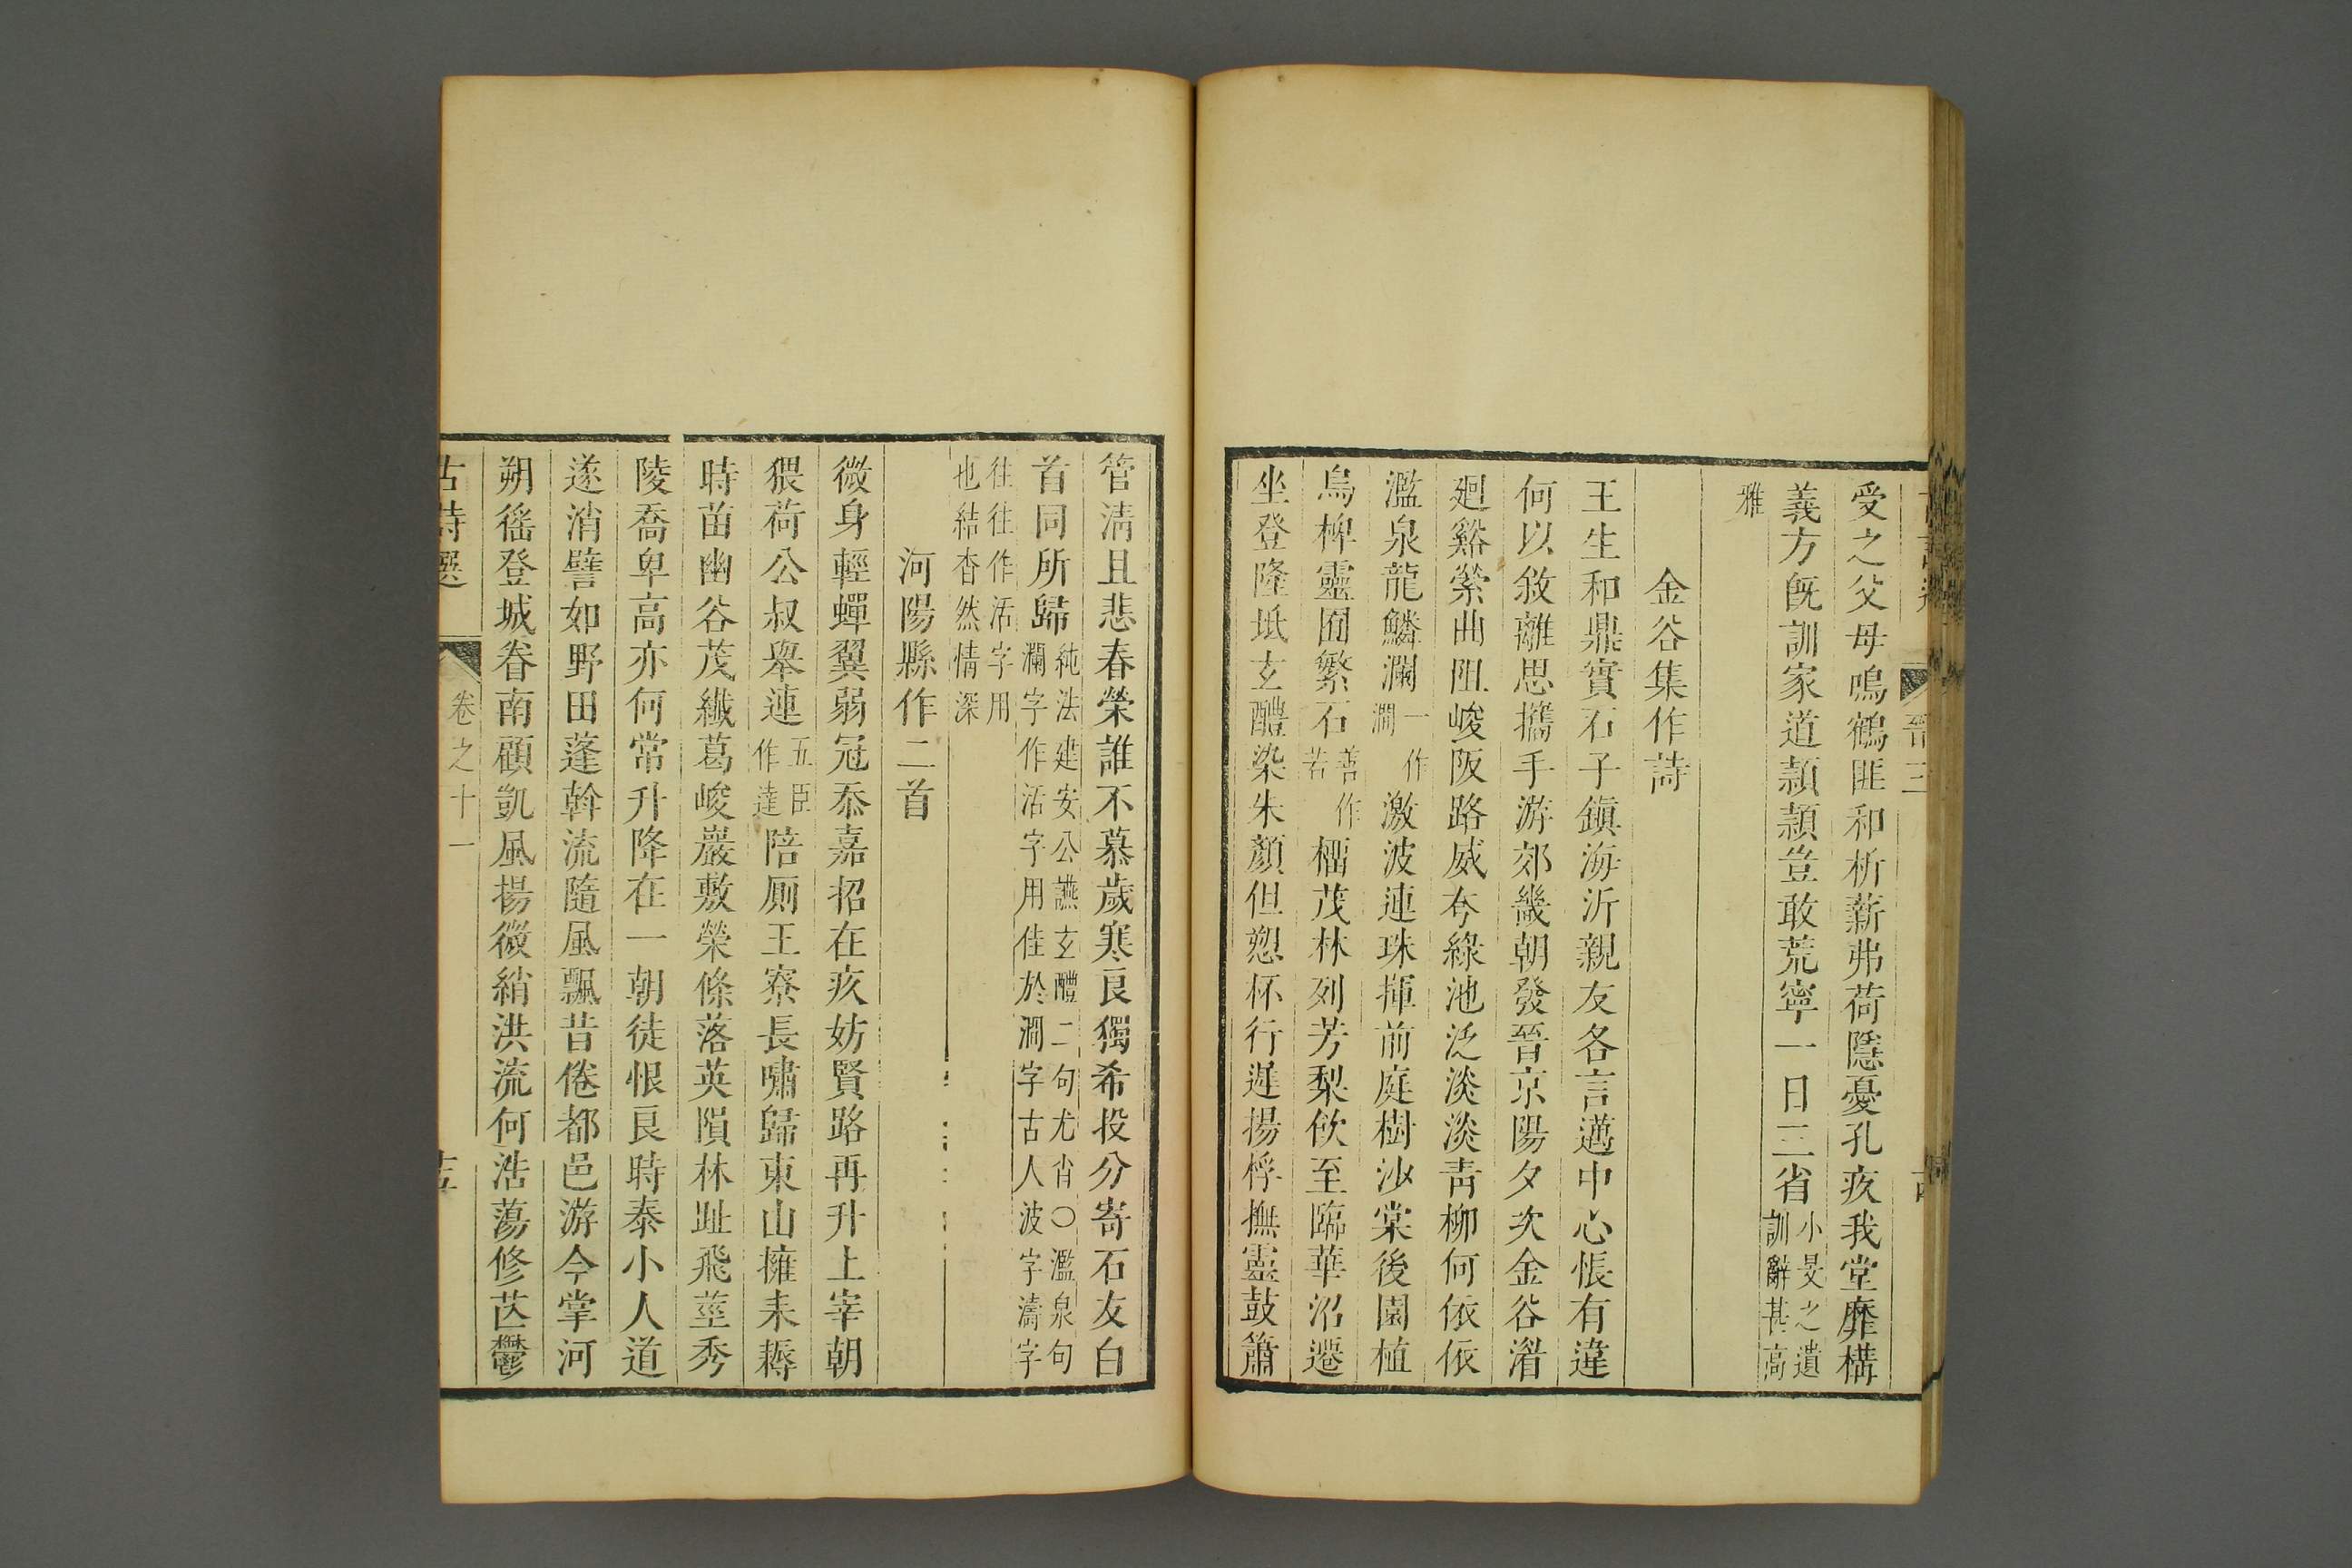 晉三
受之父母鳴鶴匪和析薪弗荷隱憂孔疚我堂靡構
義方旣訓家道頴頴豈敢荒寧一日三省小旻之遺訓辭甚高
雅
金谷集作詩
王生和鼎實石子鎭海沂親友各言邁中心悵有違
何以敘離思攜手游郊畿朝發晉京陽夕次金谷湄
廻谿縈曲阻峻阪路威夸綠池泛淡淡靑柳何依依
濫泉龍鱗瀾一作澗激波連珠揮前庭樹沙棠後園植
烏椑靈囿繁石善作若榴茂林列芳梨飮至臨華沼遷
坐登隆坻玄醴染朱顏但愬杯行遲揚桴撫靈鼓簫
管淸且悲春榮誰不慕歲寒良獨希投分寄石友白
首同所歸純法建安公讌玄醴二句尤肖○濫泉句瀾字作活字用佳於澗字古人波字濤字
往往作活字用也結杳然情深
河陽縣作二首
微身輕蟬翼弱冠忝嘉招在疚妨賢路再升上宰朝
猥荷公叔舉連五臣作達陪厠王寮長嘯歸東山擁耒耨
時苗幽谷茂纖葛峻巖敷榮條落英隕林趾飛莖秀
陵喬卑高亦何常升降在一朝徒恨良時泰小人道
遂消譬如野田蓬斡流隨風飄昔倦都邑游今掌河
朔徭登城眷南顧凱風揚微綃洪流何浩蕩修芒鬱
古詩選 卷之十一